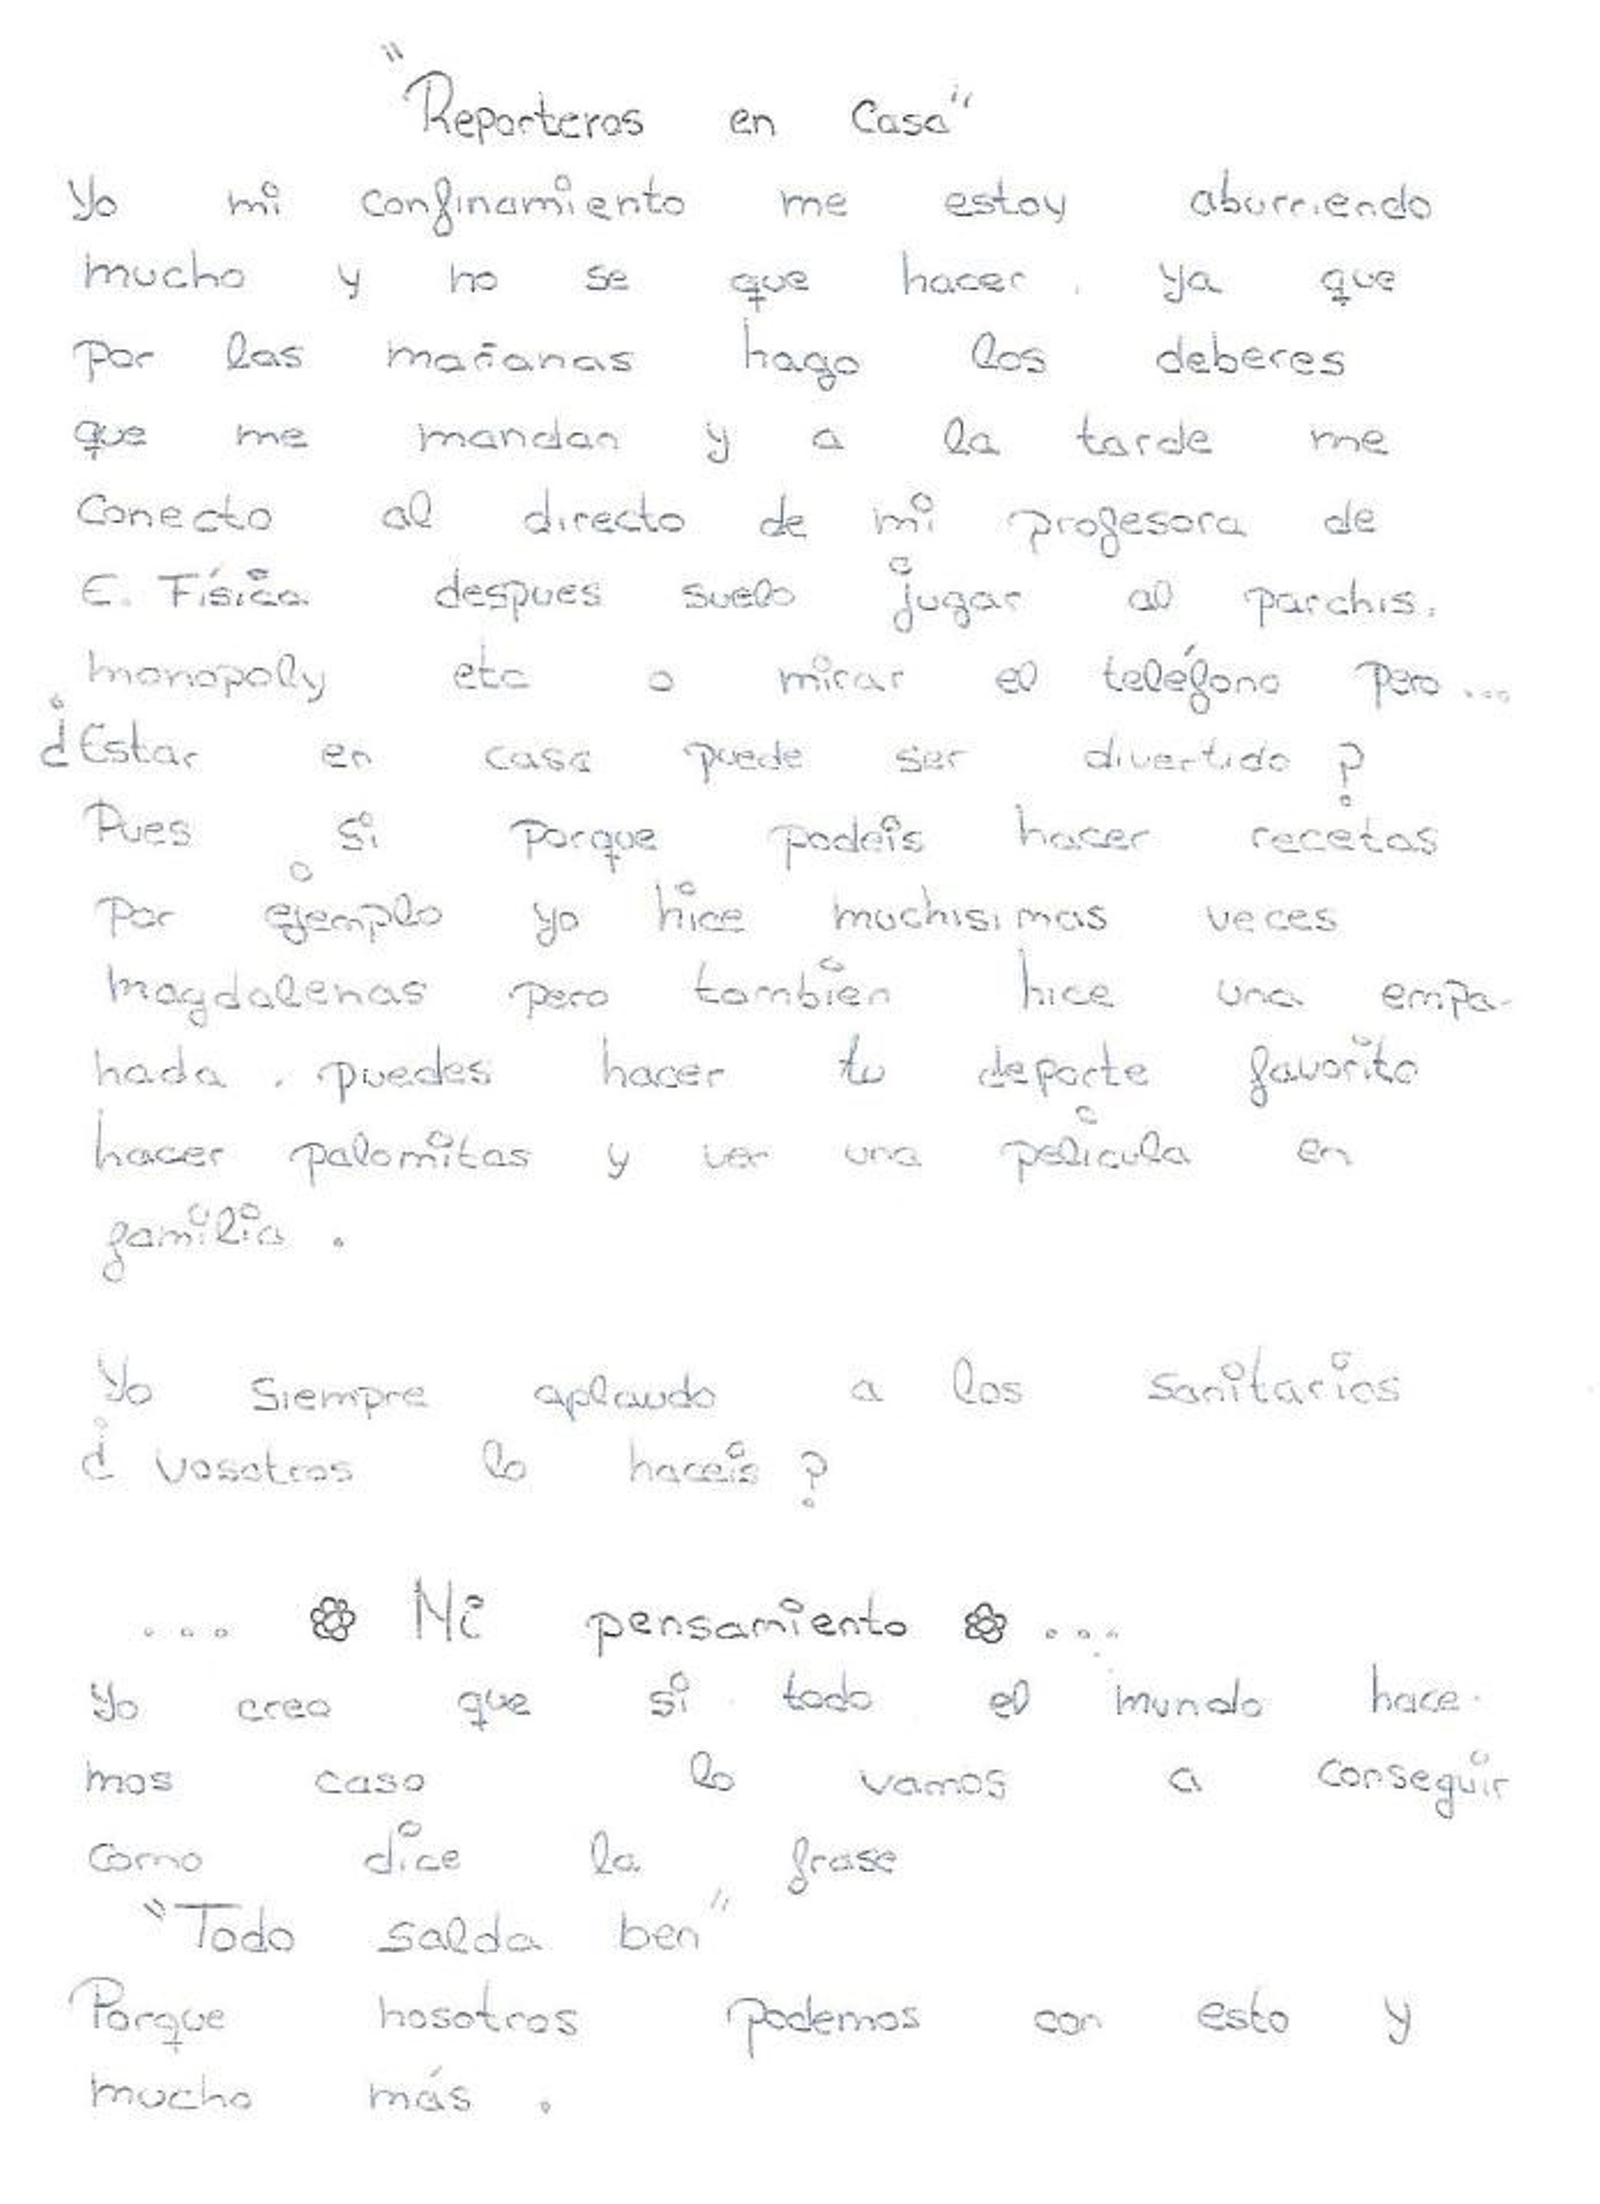 "Reporteros en Casa"
Yo mi confinamiento me estoy aburriendo
mucho y no se que hacer. Ya que
por las mañanas hago los deberes
que me mandan y a la tarde me
conecto al directo de mi profesora de
E. Física despues suelo jugar al parchis,
monopoly etc o mirar el teléfono pero...
¿Estar en casa puede ser divertido?
Pues si porque podeis hacer recetas
por ejemplo yo hice muchisimas veces
magdalenas pero tambien hice una empa-
nada. puedes hacer tu deporte favorito
hacer palomitas y ver una pelicula en
familia.
Yo siempre aplaudo a los sanitarios
¿vosotros lo haceis?
... Mi pensamiento ...
Yo creo que si todo el mundo hace-
mos caso lo vamos a conseguir
como dice la frase
"Todo salda ben"
Porque nosotros podemos con esto y
mucho más.